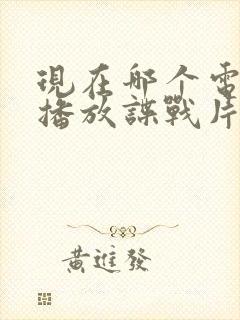 現在那个電
播放諜戰片
黄進發